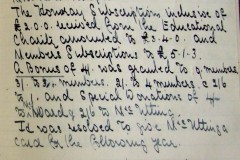 The Monday Subscriptions inclusive of
£2.0.0 received from the Educational
Charity amounted to £3.4.0. and
Members Subscriptions to £5-1-3.
A Bonus of 4/. was granted to 5 members
3/. to 2 . members. 2/. to 4 members, & 2/6
to 1. and Special Donations of 4/-
to 2/6 to Mrs Utting.
It was resolved to give Mrs Utting a
card for the following year.